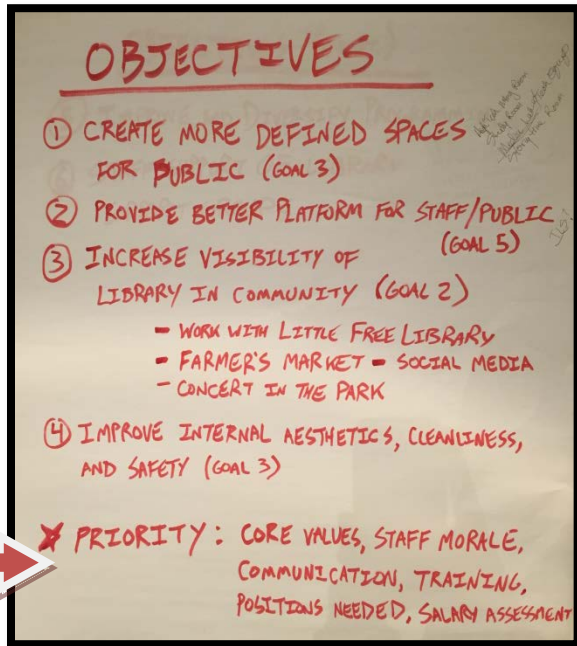 OBJECTIVES
① CREATE MORE DEFINED SPACES
FOR PUBLIC (GOAL 3)
② PROVIDE BETTER PLATFORM FOR STAFF/PUBLIC
(GOAL 5)
③ INCREASE VISIBILITY OF
LIBRARY IN COMMUNITY (GOAL 2)
- WORK WITH LITTLE FREE LIBRARY
- FARMER'S MARKET - SOCIAL MEDIA
- CONCERT IN THE PARK
④ IMPROVE INTERNAL AESTHETICS, CLEANLINESS,
AND SAFETY (GOAL 3)
PRIORITY: CORE VALUES, STAFF MORALE,
COMMUNICATION, TRAINING,
POSITIONS NEEDED, SALARY ASSESSMENT
Room
Study Room
Room